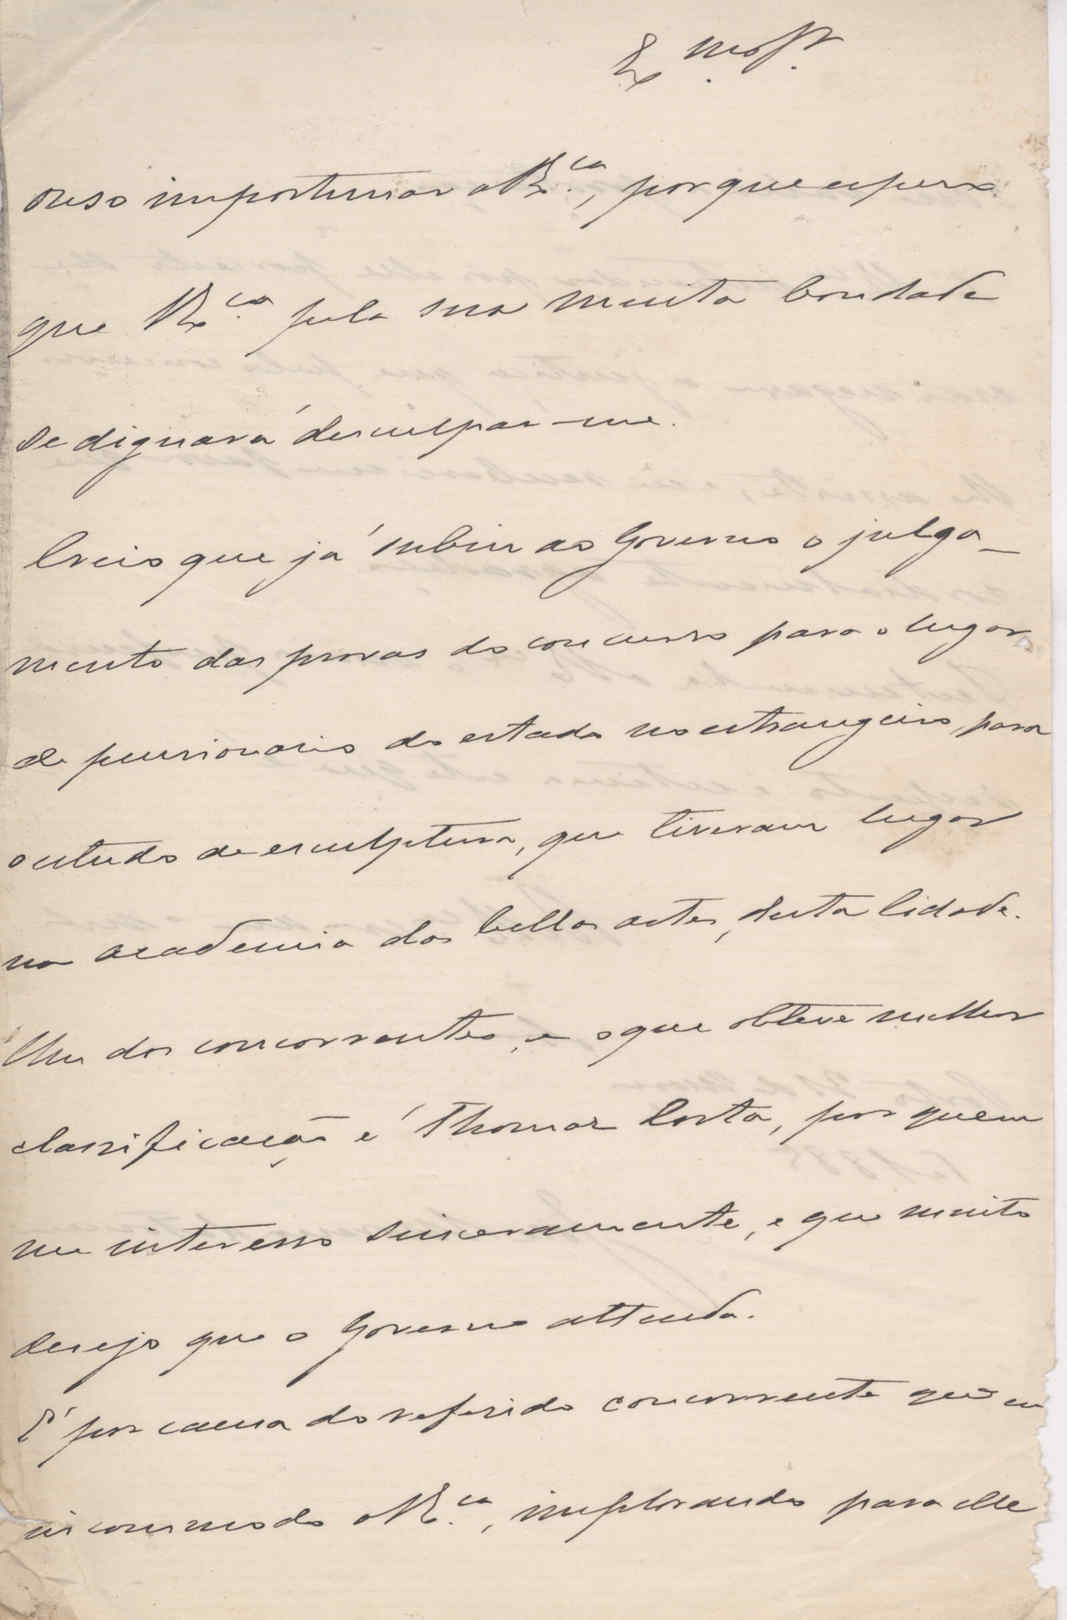 Ex.mo Sr.
Ouso importunar a V. Ex.cia, porque espero
que V. Ex.cia pela sua muita bondade
se dignará desculpar-me.
Creio que já subiu ao Governo o julga-
mento das provas do concurso para o lugar
de pensionario do estado no estrangeiro, para
o estudo de esculptura, que tiveram lugar
na academia das bellas artes, desta Cidade.
Um dos concorrentes, e o que obteve melhor
classificação é Thomaz Costa, por quem
me interesso sinceramente, e que muito
desejo que o Governo attenda.
É por causa do referido concorrente que eu
incommodo a V. Ex.cia, implorando para elle